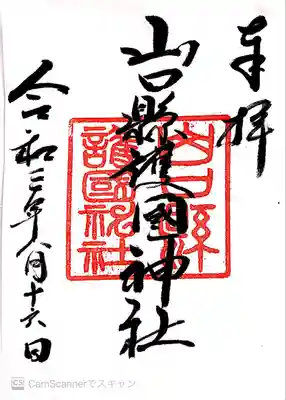 奉拝
山口縣護國神社
山口縣
護國神社
令和三年八月十六日
CS CamScannerでスキャン